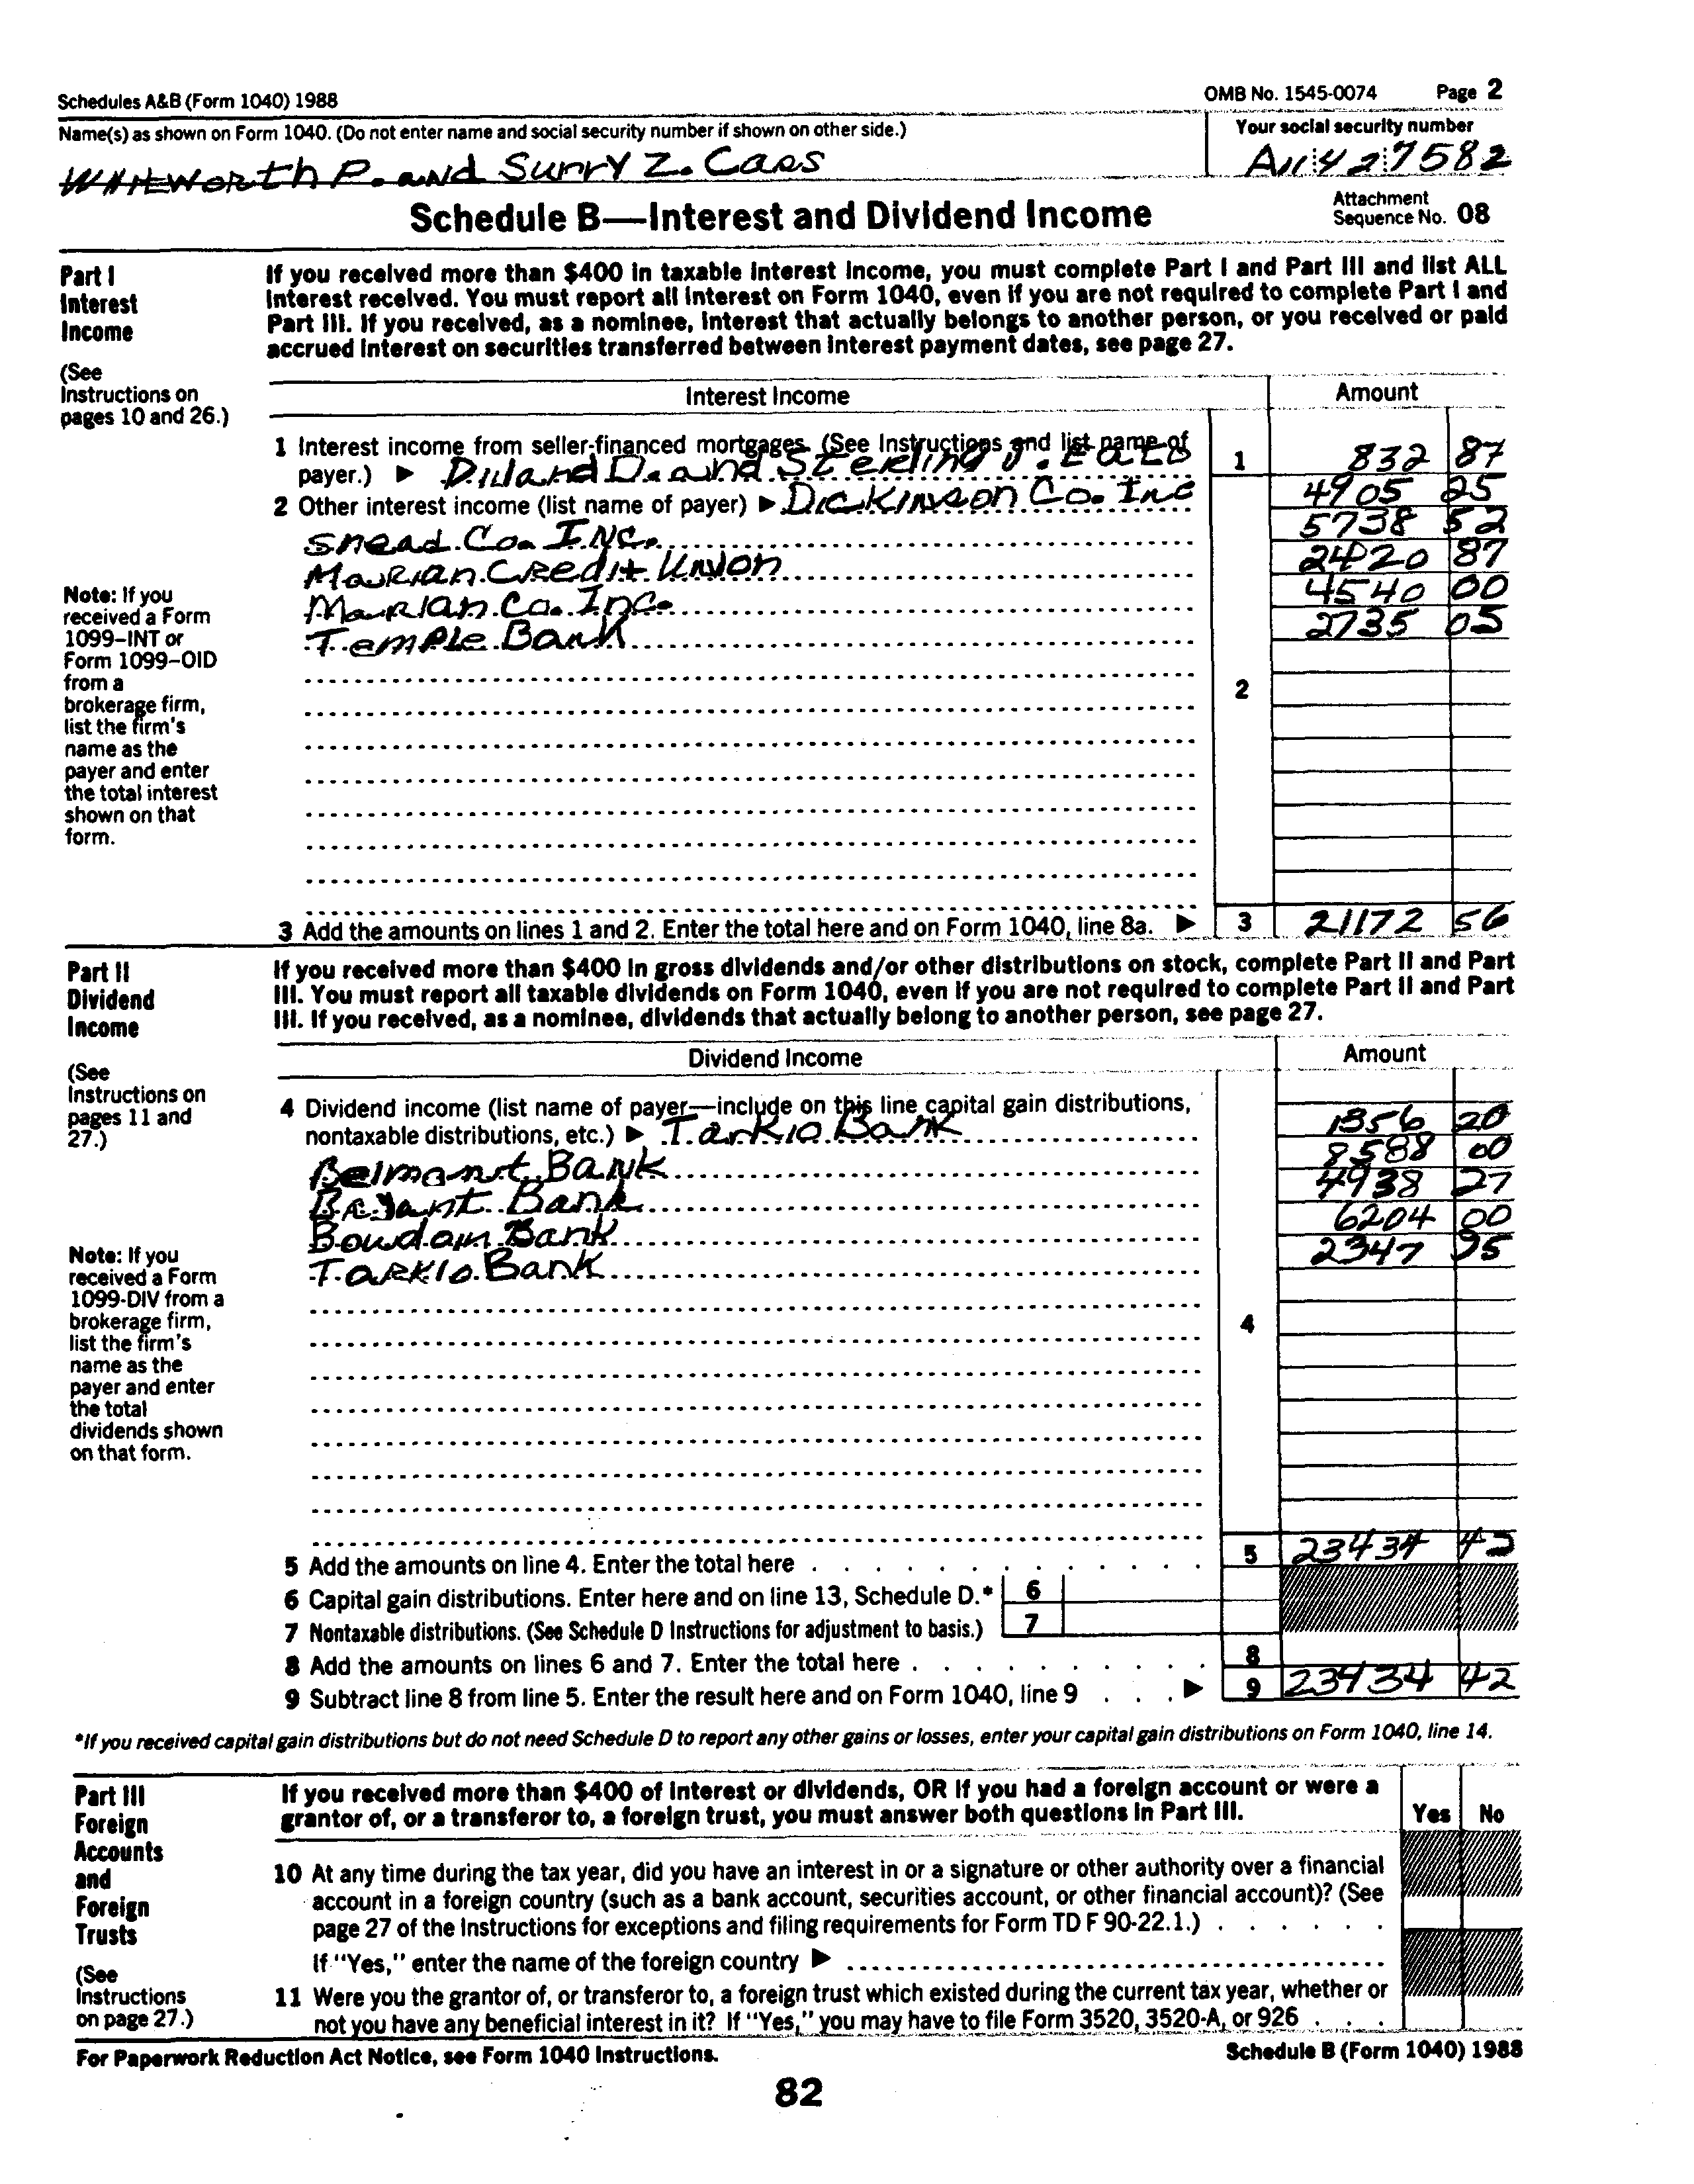 Schedules A&B (Form 1040) 1988 OMB No. 1545-0074 Page 2
Name(s) as shown on Form 1040. (Do not enter name and social security number if shown on other side.) Your social security number
P. and Surry Z. Caes 427582
Schedule B—Interest and Dividend Income
Attachment
Sequence No. 08
Part I
Interest
Income
(See
Instructions on
pages 10 and 26.)
If you received more than $400 in taxable interest income, you must complete Part I and Part III and list ALL
interest received. You must report all interest on Form 1040, even if you are not required to complete Part I and
Part III. If you received, as a nominee, interest that actually belongs to another person, or you received or paid
accrued interest on securities transferred between interest payment dates, see page 27.
Interest Income Amount
1 Interest income from seller-financed mortgages. (See Instructions and list name of
payer.) ▶ Diland D. and Sterling J. 1 832 87
2 Other interest income (list name of payer) ▶ Dickinson Co. Inc 4905 25
Snead Co. Inc. 5738 52
Marian Credit Union 2420 87
Marian Co. Inc. 4540 00
Temple Bank 2735 05
2
Note: If you
received a Form
1099–INT or
Form 1099–OID
from a
brokerage firm,
list the firm's
name as the
payer and enter
the total interest
shown on that
form.
3 Add the amounts on lines 1 and 2. Enter the total here and on Form 1040, line 8a. ▶ 3 21172 56
Part II
Dividend
Income
(See
Instructions on
pages 11 and
27.)
If you received more than $400 in gross dividends and/or other distributions on stock, complete Part II and Part
III. You must report all taxable dividends on Form 1040, even if you are not required to complete Part II and Part
III. If you received, as a nominee, dividends that actually belong to another person, see page 27.
Dividend Income Amount
4 Dividend income (list name of payer—include on this line capital gain distributions,
nontaxable distributions, etc.) ▶ Tarkio Bank 1356 20
Belmont Bank 8588 00
Bank 4938 27
Bowdain Bank 6204 00
Tarkio Bank 2347 95
4
Note: If you
received a Form
1099-DIV from a
brokerage firm,
list the firm's
name as the
payer and enter
the total
dividends shown
on that form.
5 Add the amounts on line 4. Enter the total here 5 23434 42
6 Capital gain distributions. Enter here and on line 13, Schedule D.* 6
7 Nontaxable distributions. (See Schedule D Instructions for adjustment to basis.) 7
8 Add the amounts on lines 6 and 7. Enter the total here 8
9 Subtract line 8 from line 5. Enter the result here and on Form 1040, line 9 ▶ 9 23434 42
*If you received capital gain distributions but do not need Schedule D to report any other gains or losses, enter your capital gain distributions on Form 1040, line 14.
Part III
Foreign
Accounts
and
Foreign
Trusts
(See
Instructions
on page 27.)
If you received more than $400 of interest or dividends, OR if you had a foreign account or were a
grantor of, or a transferor to, a foreign trust, you must answer both questions in Part III. Yes No
10 At any time during the tax year, did you have an interest in or a signature or other authority over a financial
account in a foreign country (such as a bank account, securities account, or other financial account)? (See
page 27 of the Instructions for exceptions and filing requirements for Form TD F 90-22.1.)
If "Yes," enter the name of the foreign country ▶
11 Were you the grantor of, or transferor to, a foreign trust which existed during the current tax year, whether or
not you have any beneficial interest in it? If "Yes," you may have to file Form 3520, 3520-A, or 926
For Paperwork Reduction Act Notice, see Form 1040 Instructions. Schedule B (Form 1040) 1988
82